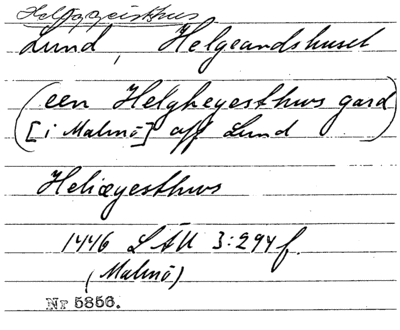 Helggeisthus
Lund, Helgeandshuset
(een Helgheyesthws gard
[i Malmö] aff Lund)
Heliæyesthws
1446 LÄU 3:294 f.
(Malmö)
Nr 5856.